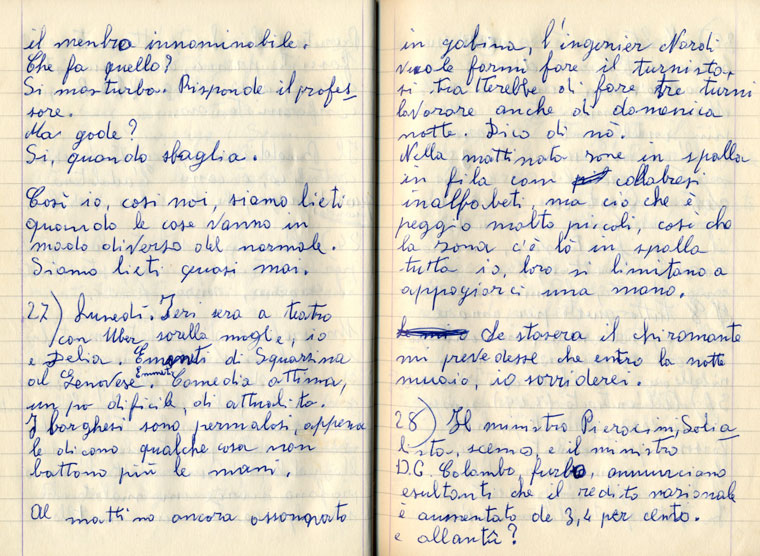 il menbro innominabile.
Che fa quello?
Si masturba. Risponde il profes-
sore.
Ma gode?
Si, quando sbaglia.
Così io, cosi noi, siamo lieti
quando le cose vanno in
modo diverso dal normale.
Siamo lieti quasi mai.
27) Lunedì. Ieri sera a teatro
con Uber, sorella moglie, io
e Delia. Emmeti di Squarzina
al Genovese. Emmeti Comedia attima,
un po dificile, di attualita.
I borghesi sono permalosi, appena
le dicono qualche cosa non
battono più le mani.
Al mattino ancora
in gabina, l'ingenier Nardi
vuole farmi fare il turnista,
si tratterebbe di fare tre turni
lavorare anche di domenica
notte. Dico di nò.
Nella mattinata zone in spalla
in fila con collabresi
inalfabeti, ma ciò che è
peggio molto piccoli, così che
la zona c'è lò in spalla
tutta io, loro si limitano a
appogiarci una mano.
Se stasera il chiromante
mi prevedesse che entro la notte
muoio, io sorriderei.
28) Il ministro Pieraccini, Solia
lista, scemo, e il ministro
D.C. Colambo, furbo, annunciano
esultanti che il redito nazionale
è aumentato de 3,4 per cento.
e allantû?